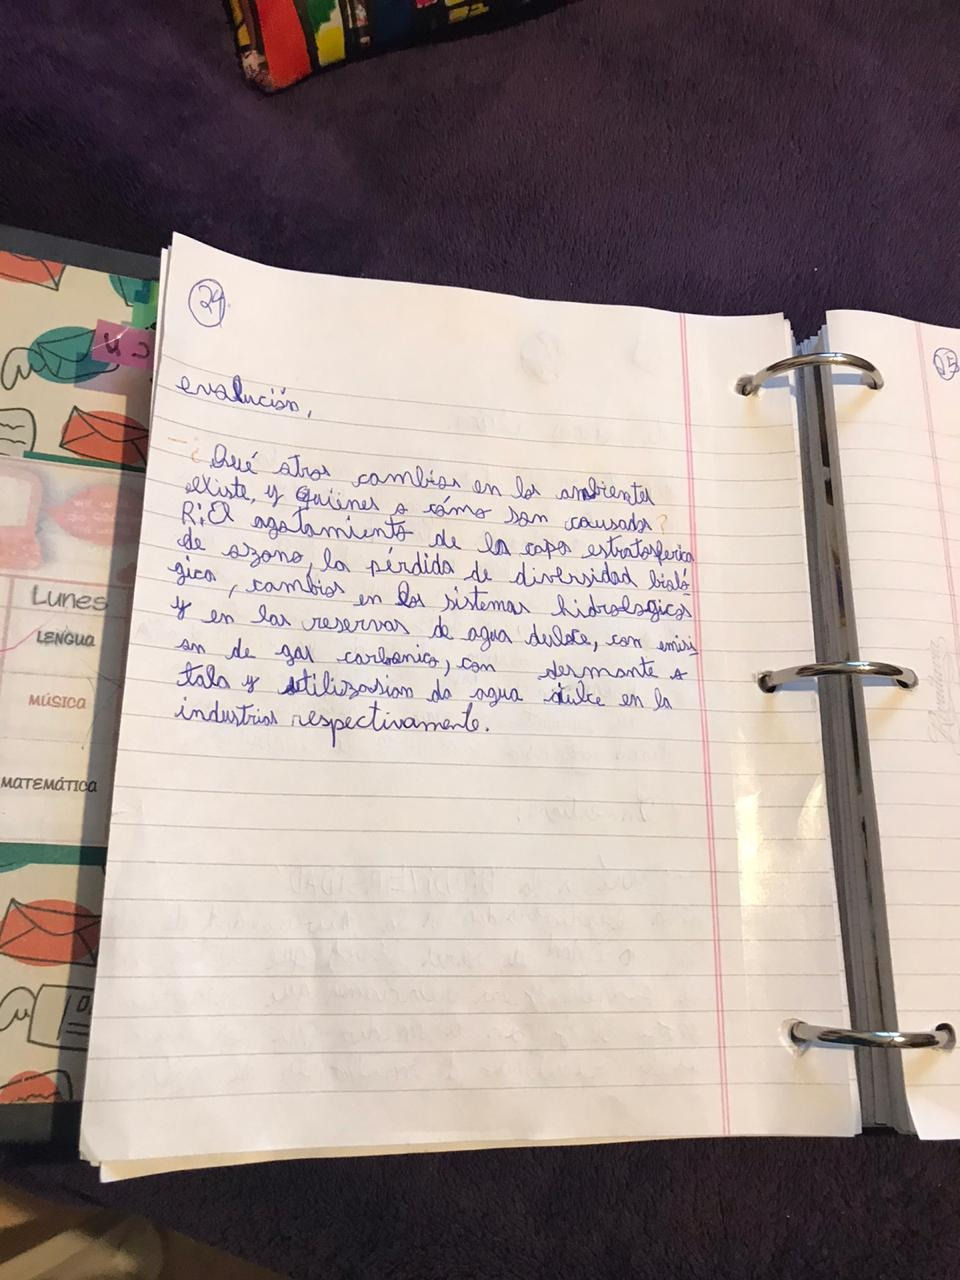 24
25
evalución,
-¿Qué otros cambios en los ambientes
existe, y quiines o cómo son causados?
R:El agotamiento de la capa estratosferica
de ozono, la pérdida de diversidad bioló-
gica, cambios en los sistemas hidrologicos
y en las reservas de agua dulce, con emisi
on de gas carbonico, con desmonte o
tala y utilizasion da agua dulce en la
industrias respectivamente.
Lunes
LENGUA
MÚSICA
MATEMÁTICA
Rivadavia